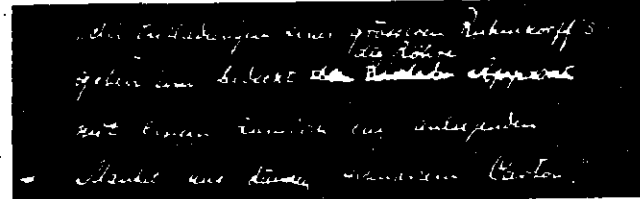 die Entladungen eines grösseren Ruhmkorff's
die Röhre
gehen und bedeckt den Apparat
mit einem ziemlich eng anliegenden
Mantel aus dünnem, schwarzem Carton,